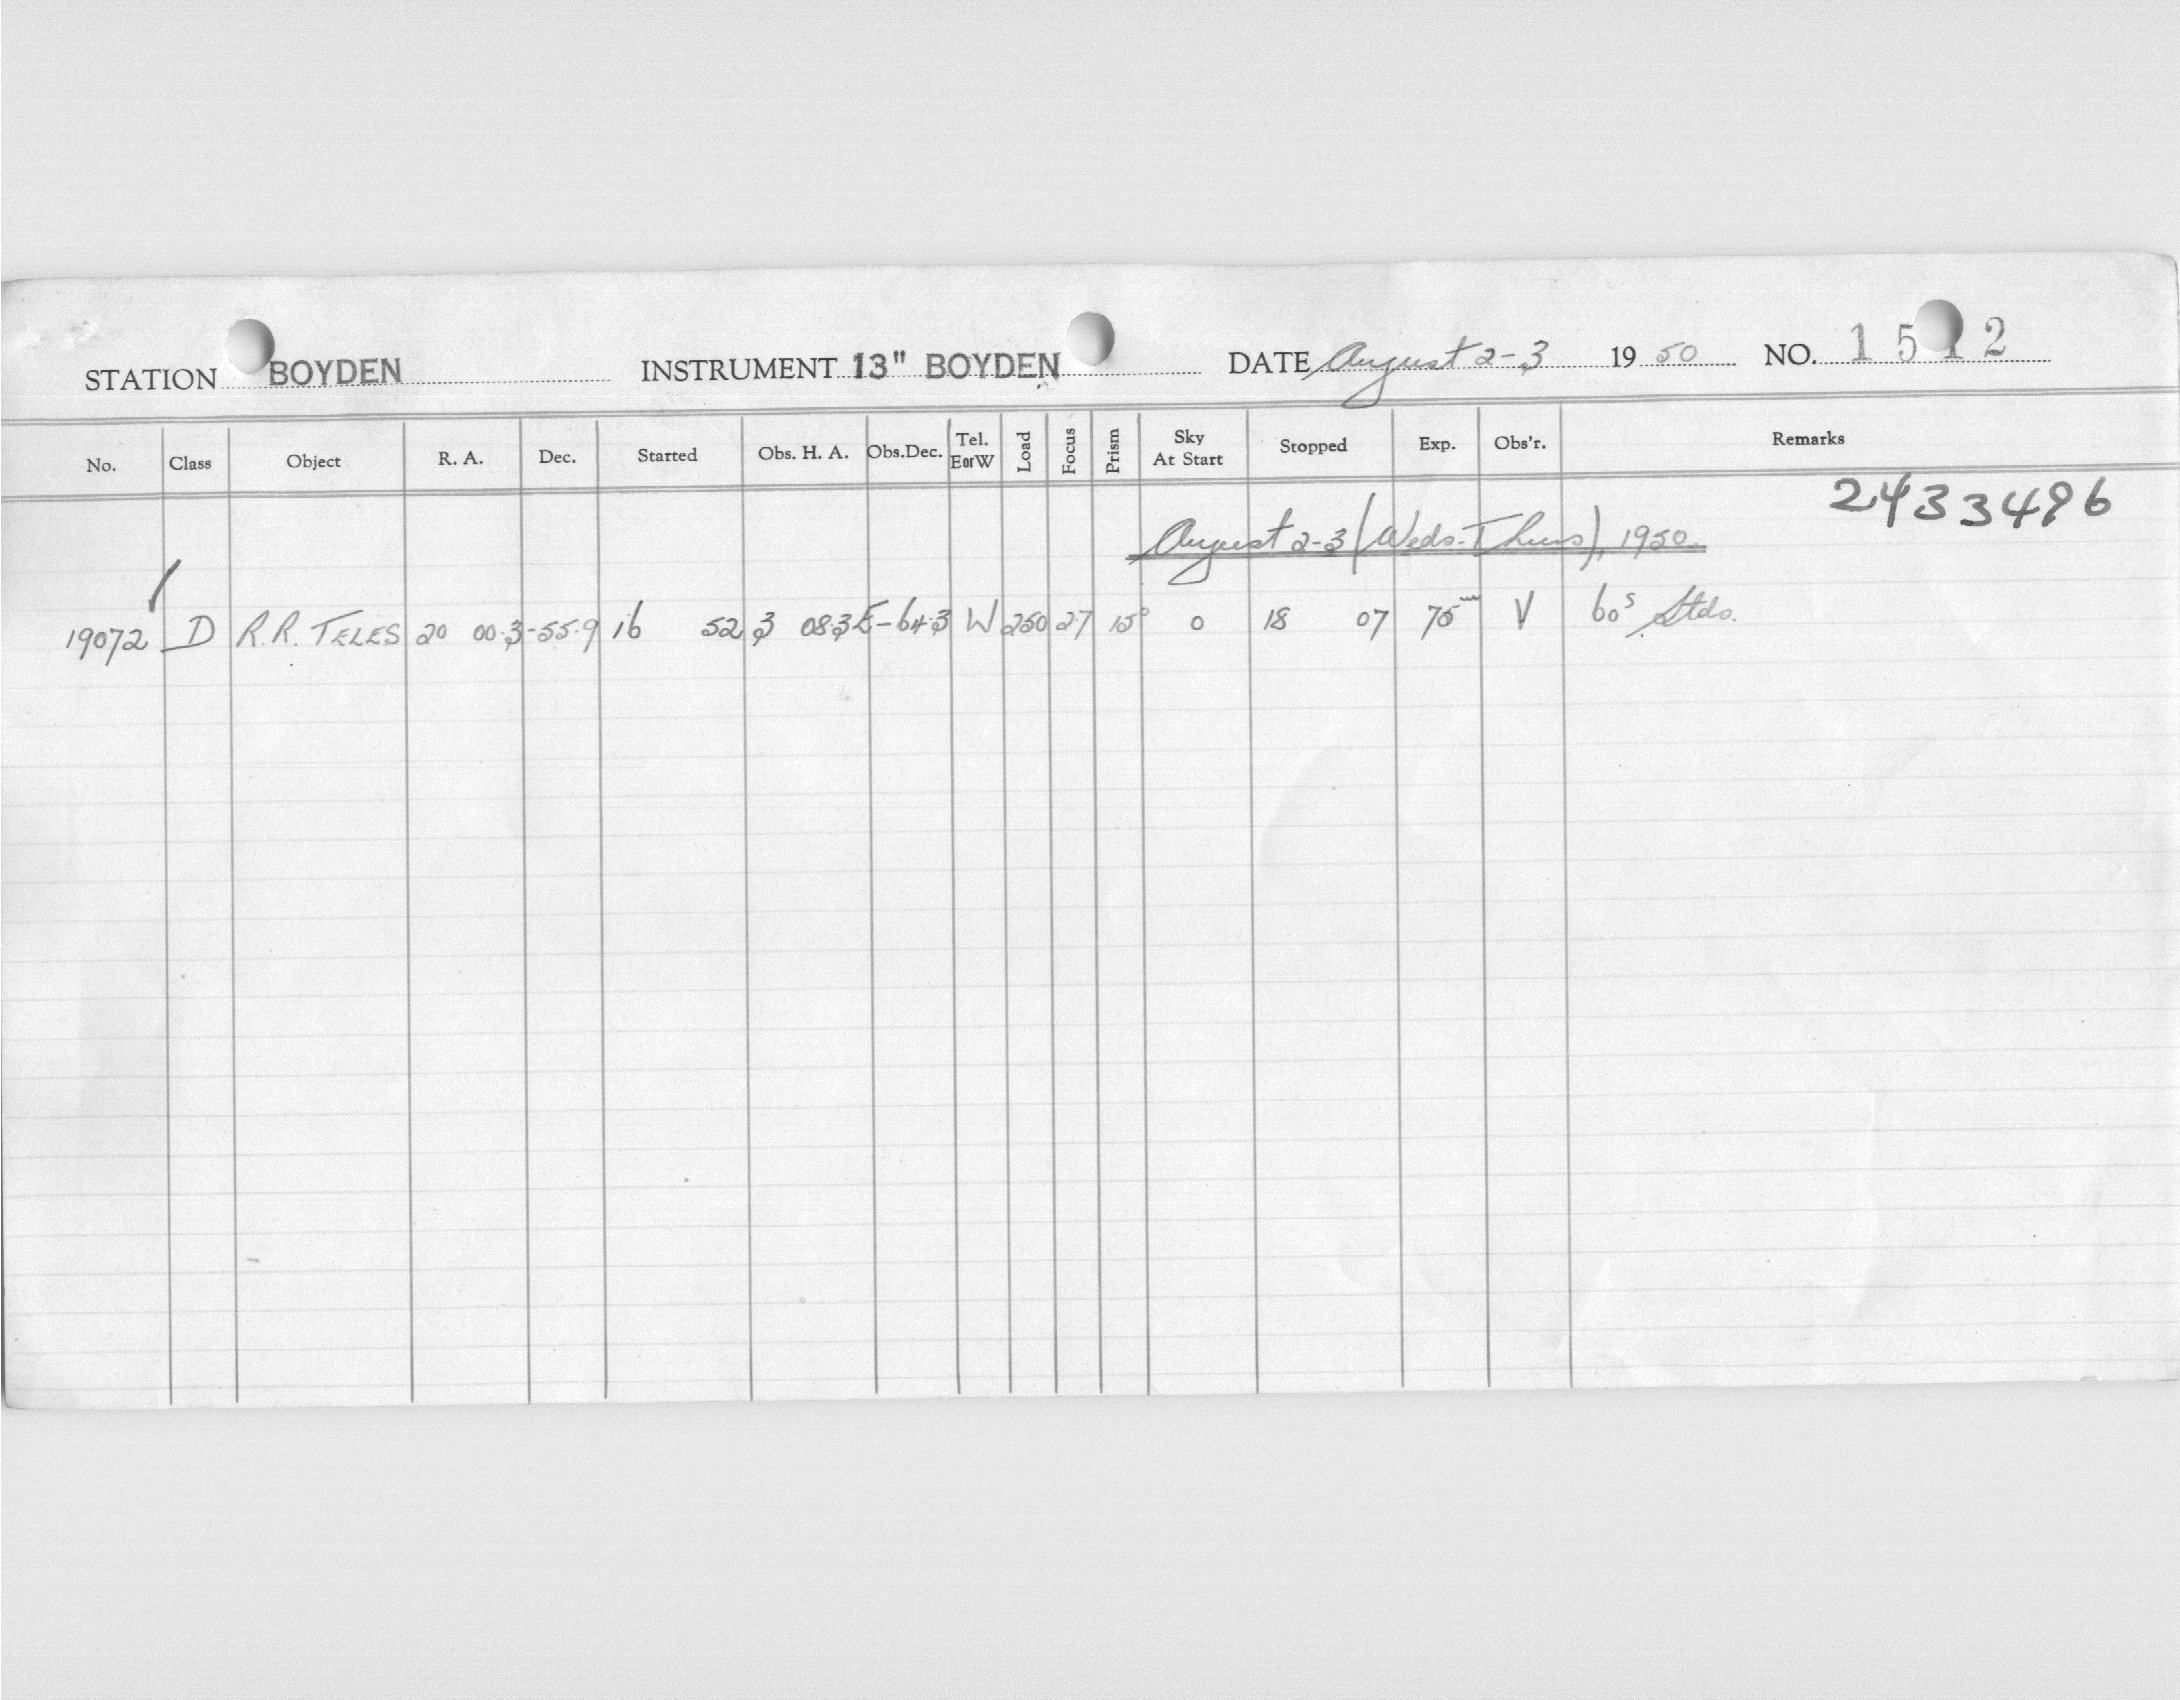 STATION BOYDEN INSTRUMENT 13" BOYDEN DATE August 2-3 1950 NO. 1512
No. Class Object R. A. Dec. Started Obs. H. A. Obs.Dec. Tel. EorW Load Focus Prism Sky At Start Stopped Exp. Obs'r. Remarks
2433496
August 2-3 (Weds-Thurs), 1950.
19072 D R.R. TELES 20 00.3 -55.9 16 52 3 08.3E -64.3 W 250 2.7 15° 0 18 07 75m V 60s Stds.